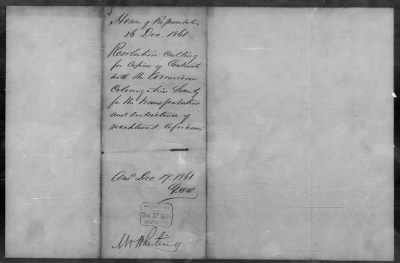 House of Representatives
16 Dec. 1861.
Resolution calling
for copies of Contracts
with the American
Colonization Society
for the transportation
and subsistence of
recaptured Africans
Ans'd Dec 17. 1861
DEC 17 1861
Mr Whiting